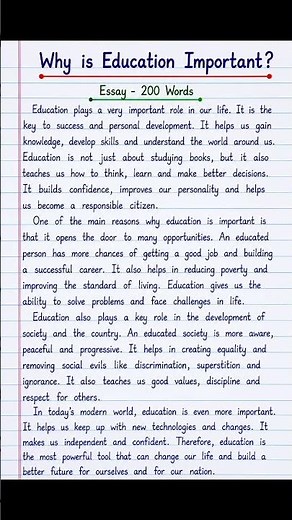 Why is Education Important?
Essay - 200 Words
Education plays a very important role in our life. It is the
key to success and personal development. It helps us gain
knowledge, develop skills and understand the world around us.
Education is not just about studying books, but it also
teaches us how to think, learn and make better decisions.
It builds confidence, improves our personality and helps
us become a responsible citizen.
One of the main reasons why education is important is
that it opens the door to many opportunities. An educated
person has more chances of getting a good job and building
a successful career. It also helps in reducing poverty and
improving the standard of living. Education gives us the
ability to solve problems and face challenges in life.
Education also plays a key role in the development of
society and the country. An educated society is more aware,
peaceful and progressive. It helps in creating equality and
removing social evils like discrimination, superstition and
ignorance. It also teaches us good values, discipline and
respect for others.
In today's modern world, education is even more important.
It helps us keep up with new technologies and changes. It
makes us independent and confident. Therefore, education is
the most powerful tool that can change our life and build a
better future for ourselves and for our nation.